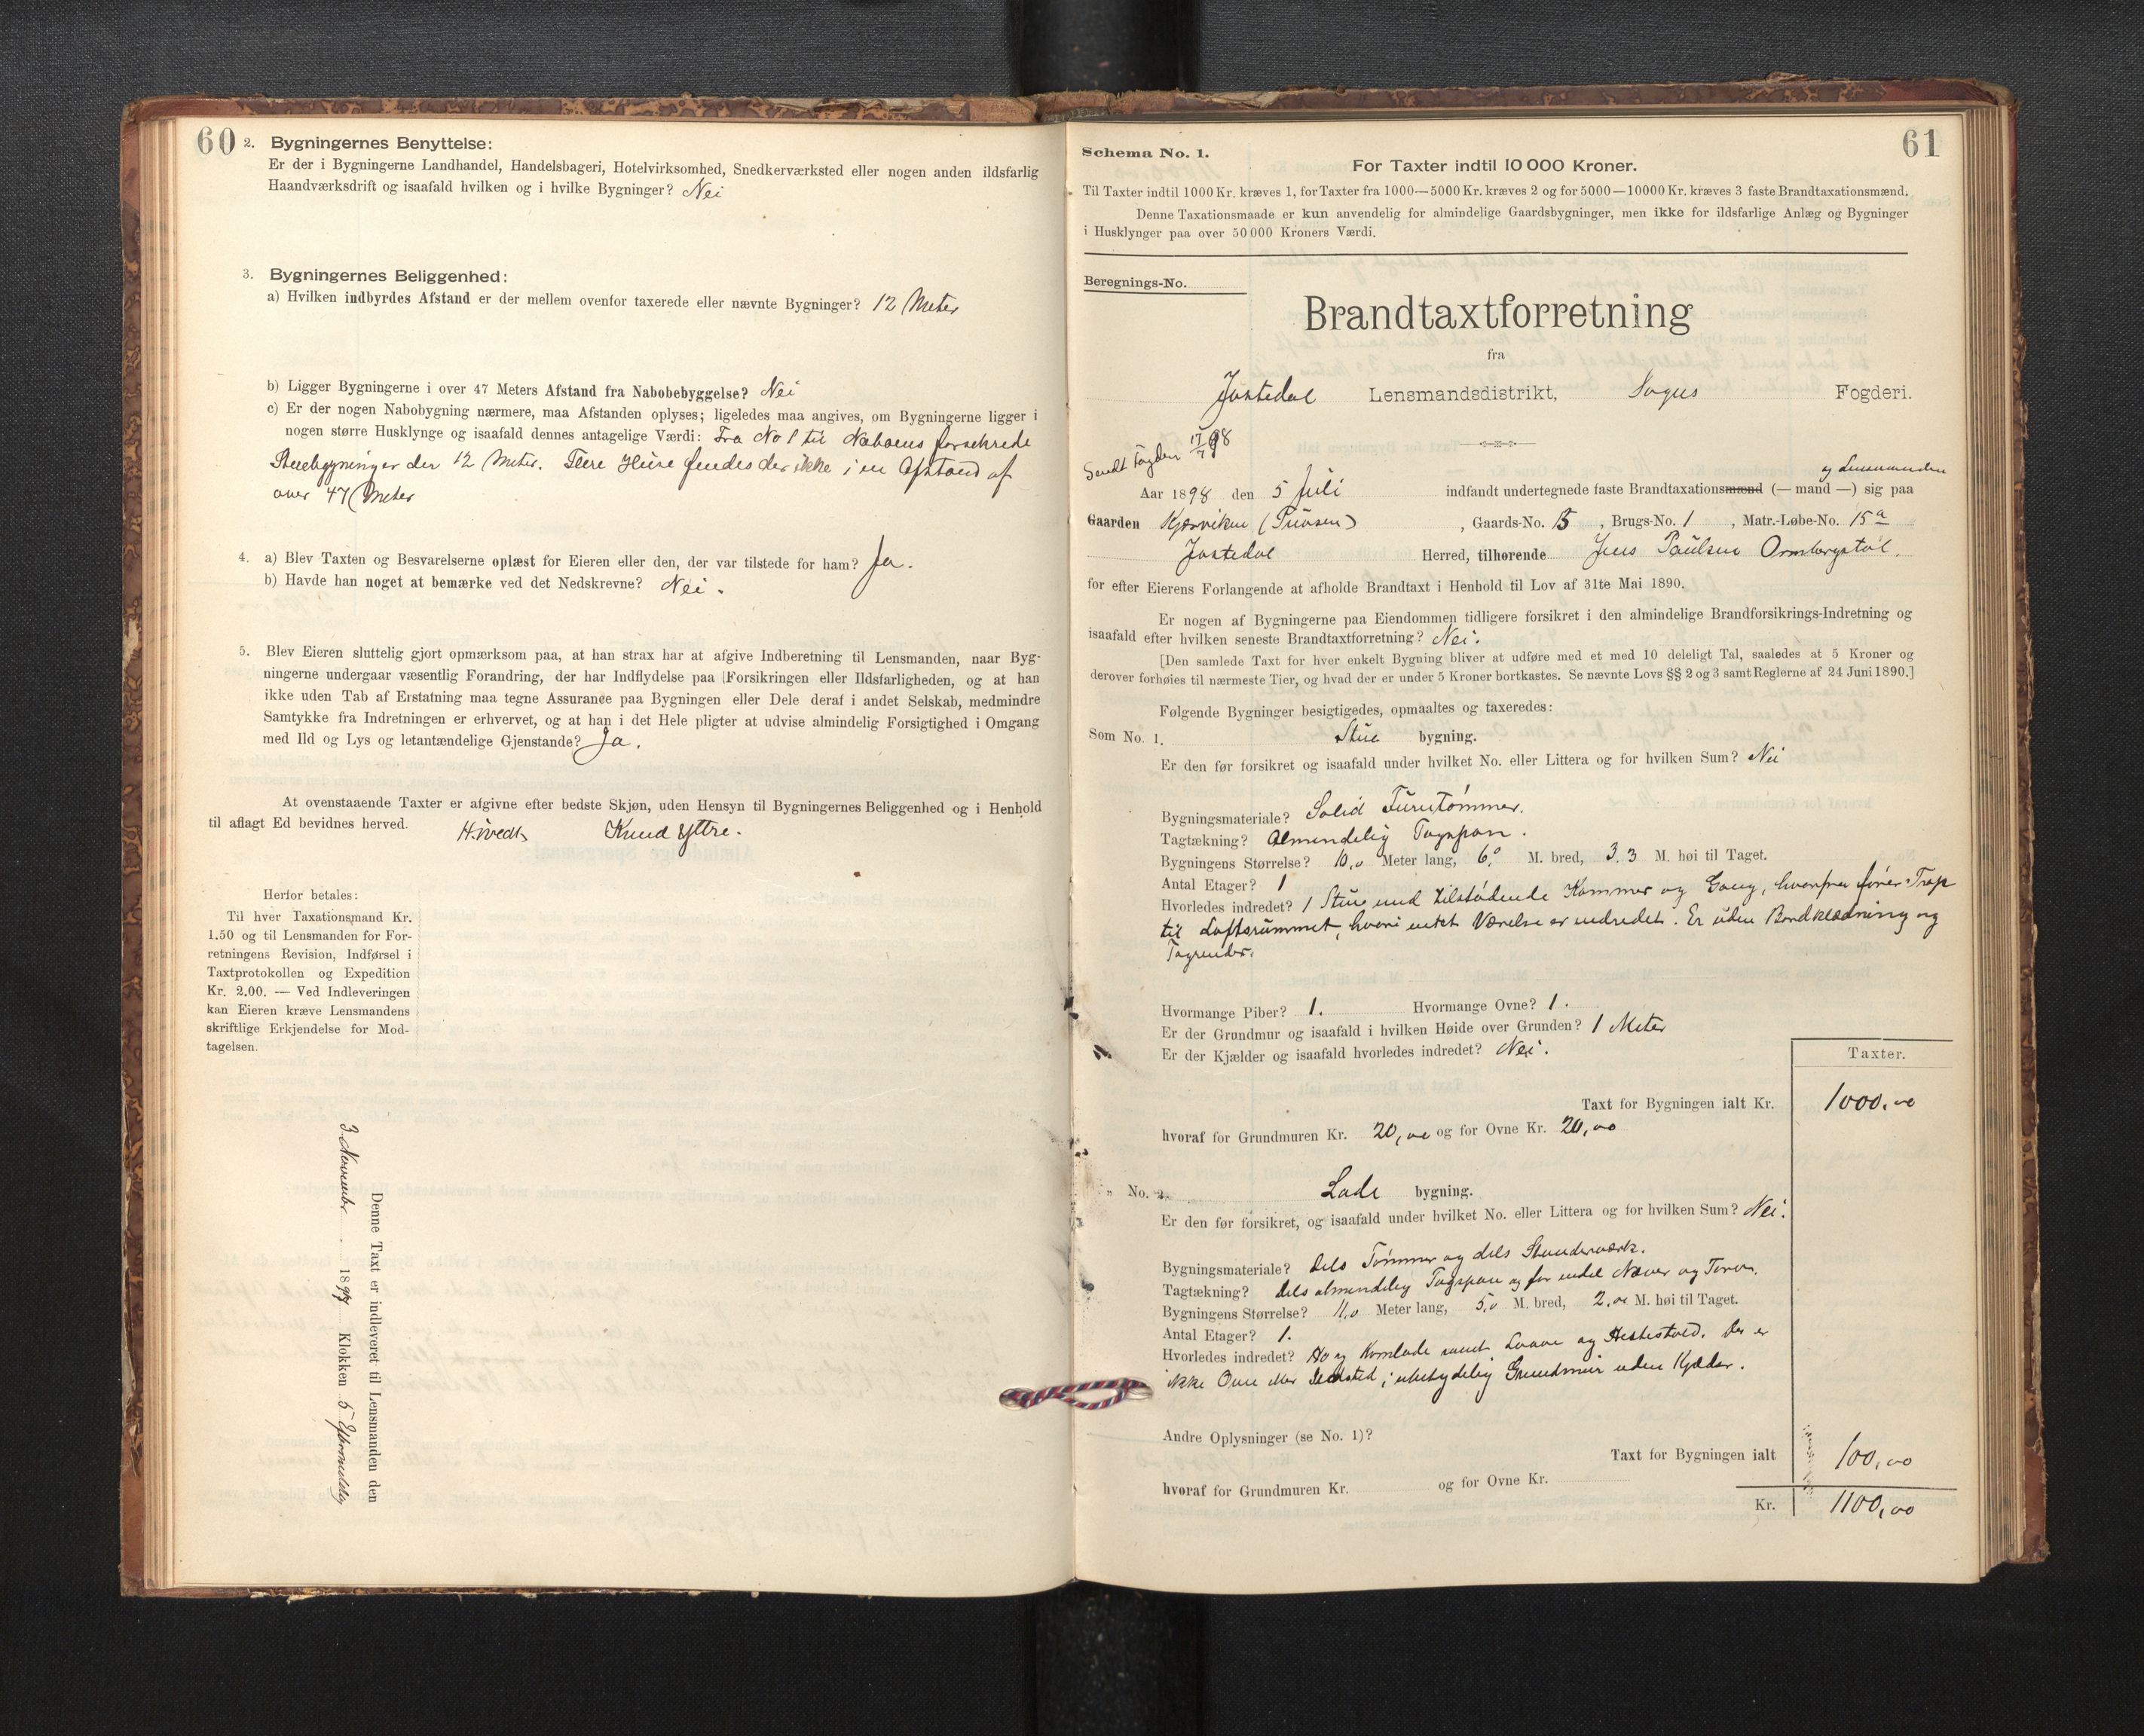 60
2. Bygningernes Benyttelse:
Er der i Bygningerne Landhandel, Handelsbageri, Hotelvirksomhed, Snedkerværksted eller nogen anden ildsfarlig
Haandværksdrift og isaafald hvilken og i hvilke Bygninger? Nei
3. Bygningernes Beliggenhed:
a) Hvilken indbyrdes Afstand er der mellem ovenfor taxerede eller nævnte Bygninger? 12 Meter
b) Ligger Bygningerne i over 47 Meters Afstand fra Nabobebyggelse? Nei
c) Er der nogen Nabobygning nærmere, maa Afstanden oplyses; ligeledes maa angives, om Bygningerne ligger i
nogen større Husklynge og isaafald dennes antagelige Værdi: Fra No 1 til Naboens forsekrede
Stuebygning er der 12 Meter. Flere Huse findes der ikke i en Afstand af
over 47 Meter
4. a) Blev Taxten og Besvarelserne oplæst for Eieren eller den, der var tilstede for ham? Ja.
b) Havde han noget at bemærke ved det Nedskrevne? Nei.
5. Blev Eieren sluttelig gjort opmærksom paa, at han strax har at afgive Indberetning til Lensmanden, naar Byg-
ningerne undergaar væsentlig Forandring, der har Indflydelse paa Forsikringen eller Ildsfarligheden, og at han
ikke uden Tab af Erstatning maa tegne Assurance paa Bygningen eller Dele deraf i andet Selskab, medmindre
Samtykke fra Indretningen er erhvervet, og at han i det Hele pligter at udvise almindelig Forsigtighed i Omgang
med Ild og Lys og letantændelige Gjenstande? Ja.
At ovenstaaende Taxter er afgivne efter bedste Skjøn, uden Hensyn til Bygningernes Beliggenhed og i Henhold
til aflagt Ed bevidnes herved. Knud Yttre.
Herfor betales:
Til hver Taxationsmand Kr.
1.50 og til Lensmanden for For-
retningens Revision, Indførsel i
Taxtprotokollen og Expedition
Kr. 2.00. — Ved Indleveringen
kan Eieren kræve Lensmandens
skriftlige Erkjendelse for Mod-
tagelsen.
Denne Taxt er indleveret til Lensmanden den
3 November 1897 Klokken 5 Eftermiddag
61
Schema No. 1.
For Taxter indtil 10 000 Kroner.
Til Taxter indtil 1000 Kr. kræves 1, for Taxter fra 1000—5000 Kr. kræves 2 og for 5000—10000 Kr. kræves 3 faste Brandtaxationsmænd.
Denne Taxationsmaade er kun anvendelig for almindelige Gaardsbygninger, men ikke for ildsfarlige Anlæg og Bygninger
i Husklynger paa over 50 000 Kroners Værdi.
Beregnings-No.
Brandtaxtforretning
fra
Jostedal Lensmandsdistrikt, Sogns Fogderi.
Sendt Fogden 17/7 98
og Lensmanden
Aar 1898 den 5 Juli indfandt undertegnede faste Brandtaxationsmænd (— mand —) sig paa
Gaarden Kjærviken (Pinsen), Gaards-No. 15, Brugs-No. 1, Matr.-Løbe-No. 15 a
Jostedal Herred, tilhørende Jens Paulsen Ormbergstøl.
for efter Eierens Forlangende at afholde Brandtaxt i Henhold til Lov af 31te Mai 1890.
Er nogen af Bygningerne paa Eiendommen tidligere forsikret i den almindelige Brandforsikrings-Indretning og
isaafald efter hvilken seneste Brandtaxtforretning? Nei.
[Den samlede Taxt for hver enkelt Bygning bliver at udføre med et med 10 deleligt Tal, saaledes at 5 Kroner og
derover forhøies til nærmeste Tier, og hvad der er under 5 Kroner bortkastes. Se nævnte Lovs §§ 2 og 3 samt Reglerne af 24 Juni 1890.]
Følgende Bygninger besigtigedes, opmaaltes og taxeredes:
Som No. 1. Stue bygning.
Er den før forsikret og isaafald under hvilket No. eller Littera og for hvilken Sum? Nei
Bygningsmateriale? Solid Furutømmer.
Tagtækning? Almindelig Tagspon.
Bygningens Størrelse? 10,0 Meter lang, 6,0 M. bred, 3.3 M. høi til Taget.
Antal Etager? 1
Hvorledes indredet? 1 Stue med tilstødende Kammer og Gang, hvorfra fører Trap
til Loftsrummet, hvori intet Værelse er indredet. Er uden Bordklædning og
Tagrender.
Hvormange Piber? 1. Hvormange Ovne? 1.
Er der Grundmur og isaafald i hvilken Høide over Grunden? 1 Meter
Er der Kjælder og isaafald hvorledes indredet? Nei.
Taxter.
Taxt for Bygningen ialt Kr. 1000,00
hvoraf for Grundmuren Kr. 20,00 og for Ovne Kr. 20,00
" No. 2. Lade bygning.
Er den før forsikret, og isaafald under hvilket No. eller Littera og for hvilken Sum? Nei.
Bygningsmateriale? Dels Tømmer og dels Stenderværk.
Tagtækning? Dels almindelig Tagspon og for endel Næver og Torv.
Bygningens Størrelse? 11,0 Meter lang, 5,0 M. bred, 2,00 M. høi til Taget.
Antal Etager? 1.
Hvorledes indredet? Ho og Kornlade samt Laave og Hestestald. Der er
ikke Ovn eller Ildsted; ubetydelig Grundmur uden Kjælder.
Andre Oplysninger (se No. 1)?
Taxt for Bygningen ialt 100,00
hvoraf for Grundmuren Kr. og for Ovne Kr.
Kr. 1100,00